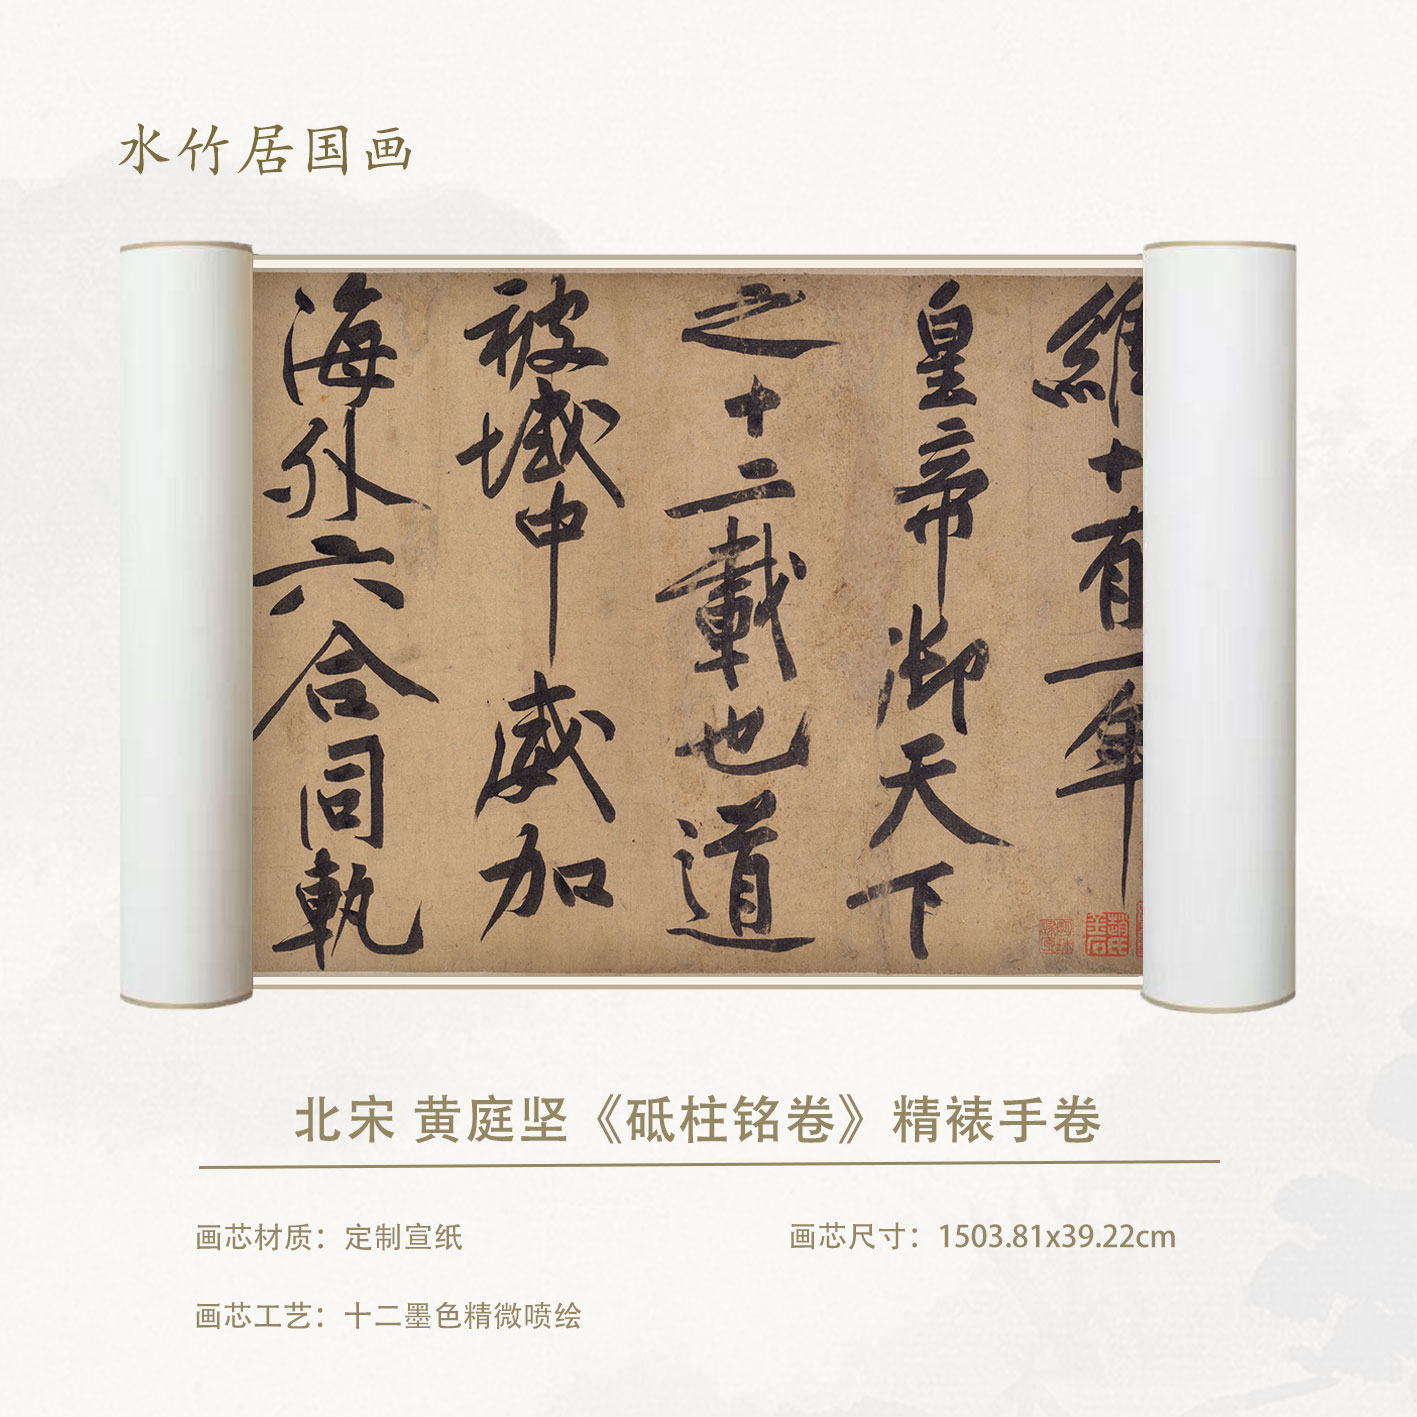 水竹居国画
維十有一年
皇帝御天下
之十二載也道
被域中威加
海外六合同軌
北宋 黄庭坚《砥柱铭卷》精裱手卷
画芯材质：定制宣纸
画芯尺寸：1503.81x39.22cm
画芯工艺：十二墨色精微喷绘